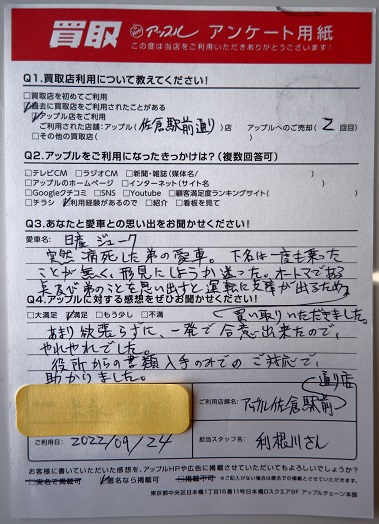 買取 アップル アンケート用紙
この度は当店をご利用いただきありがとうございます!
Q1.買取店利用について教えてください!
□買取店を初めてご利用
☑過去に買取店をご利用されたことがある
☑アップル店をご利用
ご利用された店舗:アップル(佐倉駅前通り)店 アップルへのご売却(2回目)
□その他の買取店( )
Q2.アップルをご利用になったきっかけは?(複数回答可)
□テレビCM □ラジオCM □新聞・雑誌(媒体名/ )
□アップルのホームページ □インターネット(サイト名 )
□Googleクチコミ □SNS □Youtube □顧客満足度ランキングサイト( )
□チラシ ☑利用経験があるので □紹介 □看板を見て
Q3.あなたと愛車との思い出をお聞かせください!
愛車名: 日産 ジューク
突然病死した弟の愛車。下名は一度も乗った
ことが無く、形見にしようか迷った。オートマである
点及び弟のことを思い出すと運転に支障が出るため、
買い取りいただきました。
Q4.アップルに対する感想をぜひお聞かせください!
□大満足 ☑満足 □もう少し □不満
あまり欲張らずに、一発で合意出来たので、
やれやれでした。
役所からの書類入手のみでのご対応で、
助かりました。
ご利用店舗名: アップル佐倉駅前通り店
ご利用日: 2022/09/24
担当スタッフ名: 利根川さん
お客様に書いていただいた感想を、アップルHPや広告に掲載させていただいてもよろしいでしょうか?
□実名で掲載可 ☑匿名なら掲載可 □掲載不可 ※ご記入がない場合は匿名での掲載とさせていただきます。
東京都中央区日本橋1丁目16番11号日本橋DスクエアBF アップルチェーン本部